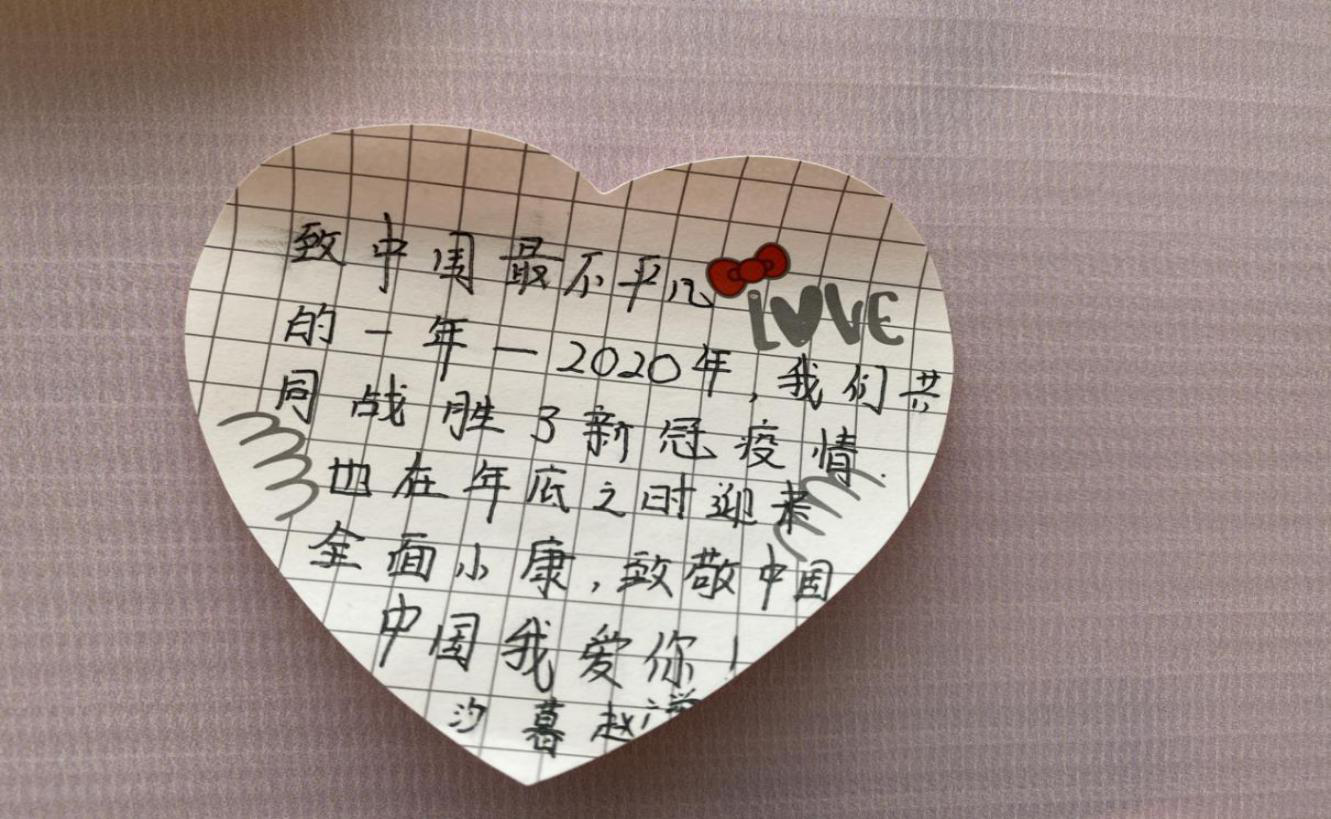 致中国最不平凡
LOVE
的一年—2020年，我们共
同战胜了新冠疫情
也在年底之时迎来
全面小康，致敬中国
中国我爱你！
汐暮 赵